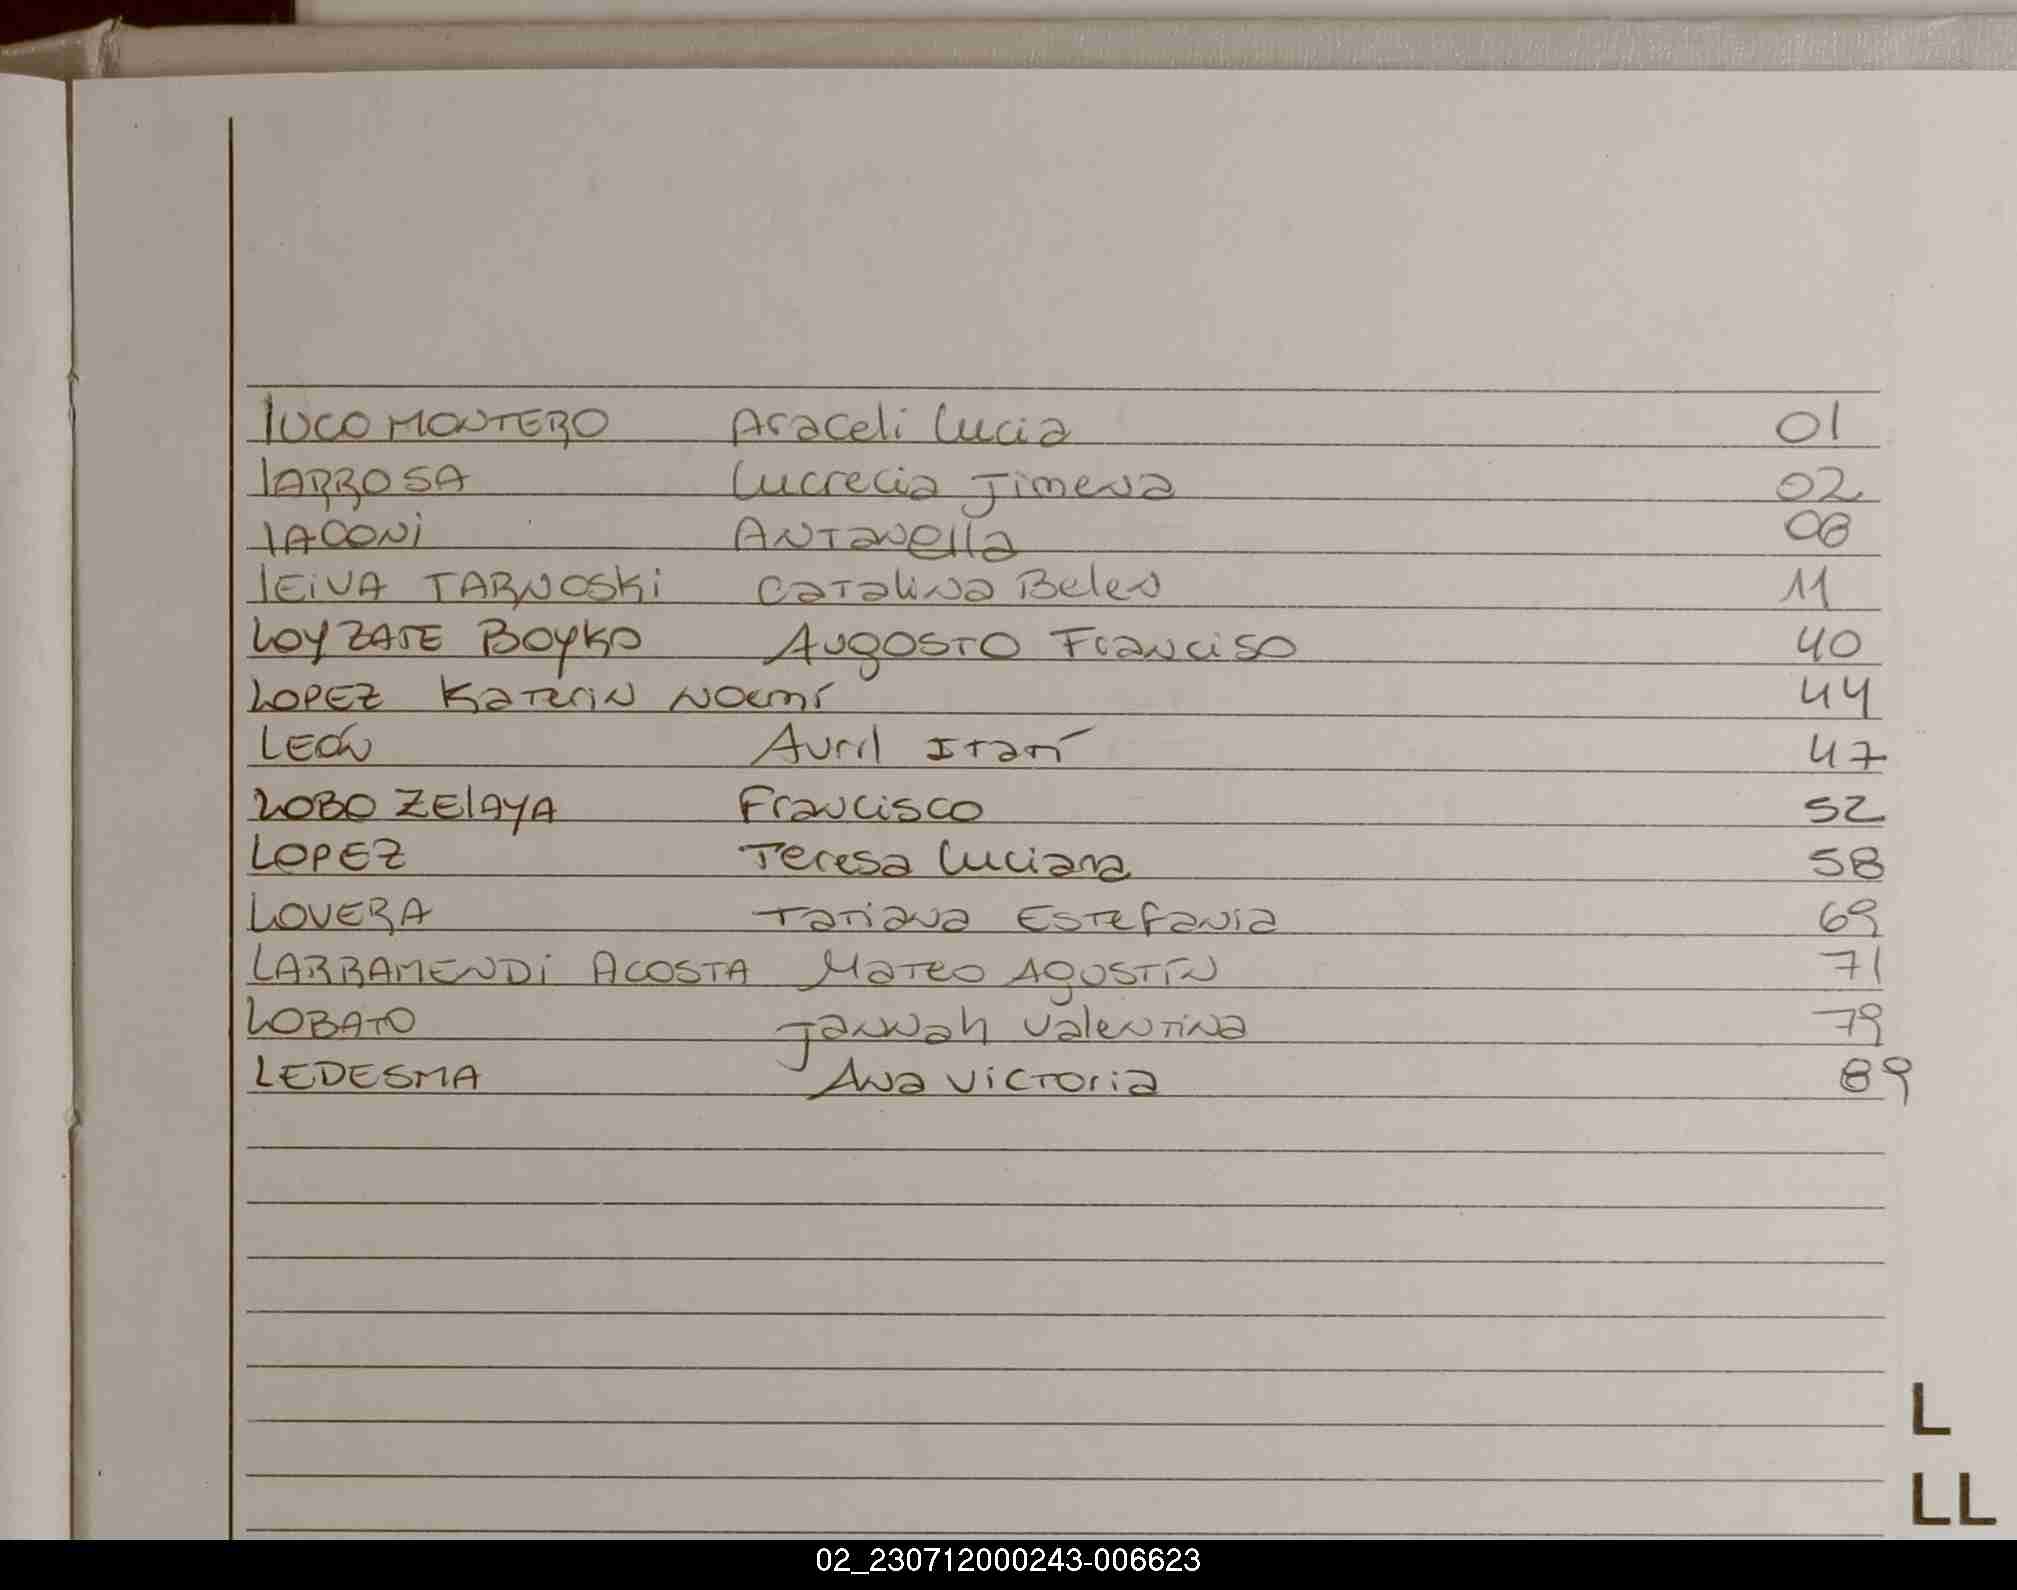 lUCO MONTERO Araceli Lucia 01
lARROSA Lucrecia Jimena 02
lACONi ANTonella 08
lEiVA TARNOSKi Catalina Belen 11
LOYZATE BOYKO AUGOSTO Franciso 40
LOPEZ Katerin Noemí 44
LEÓN Avril Itatí 47
LOBO ZElAYA Francisco 52
LOPEZ Teresa Luciana 58
LOVERA Tatiana Estefania 69
LARRAMENDi ACOSTA Mateo Agustín 71
LOBATO Jannah Valentina 79
LEDESMA Ana Victoria 89
L
LL
02_230712000243-006623